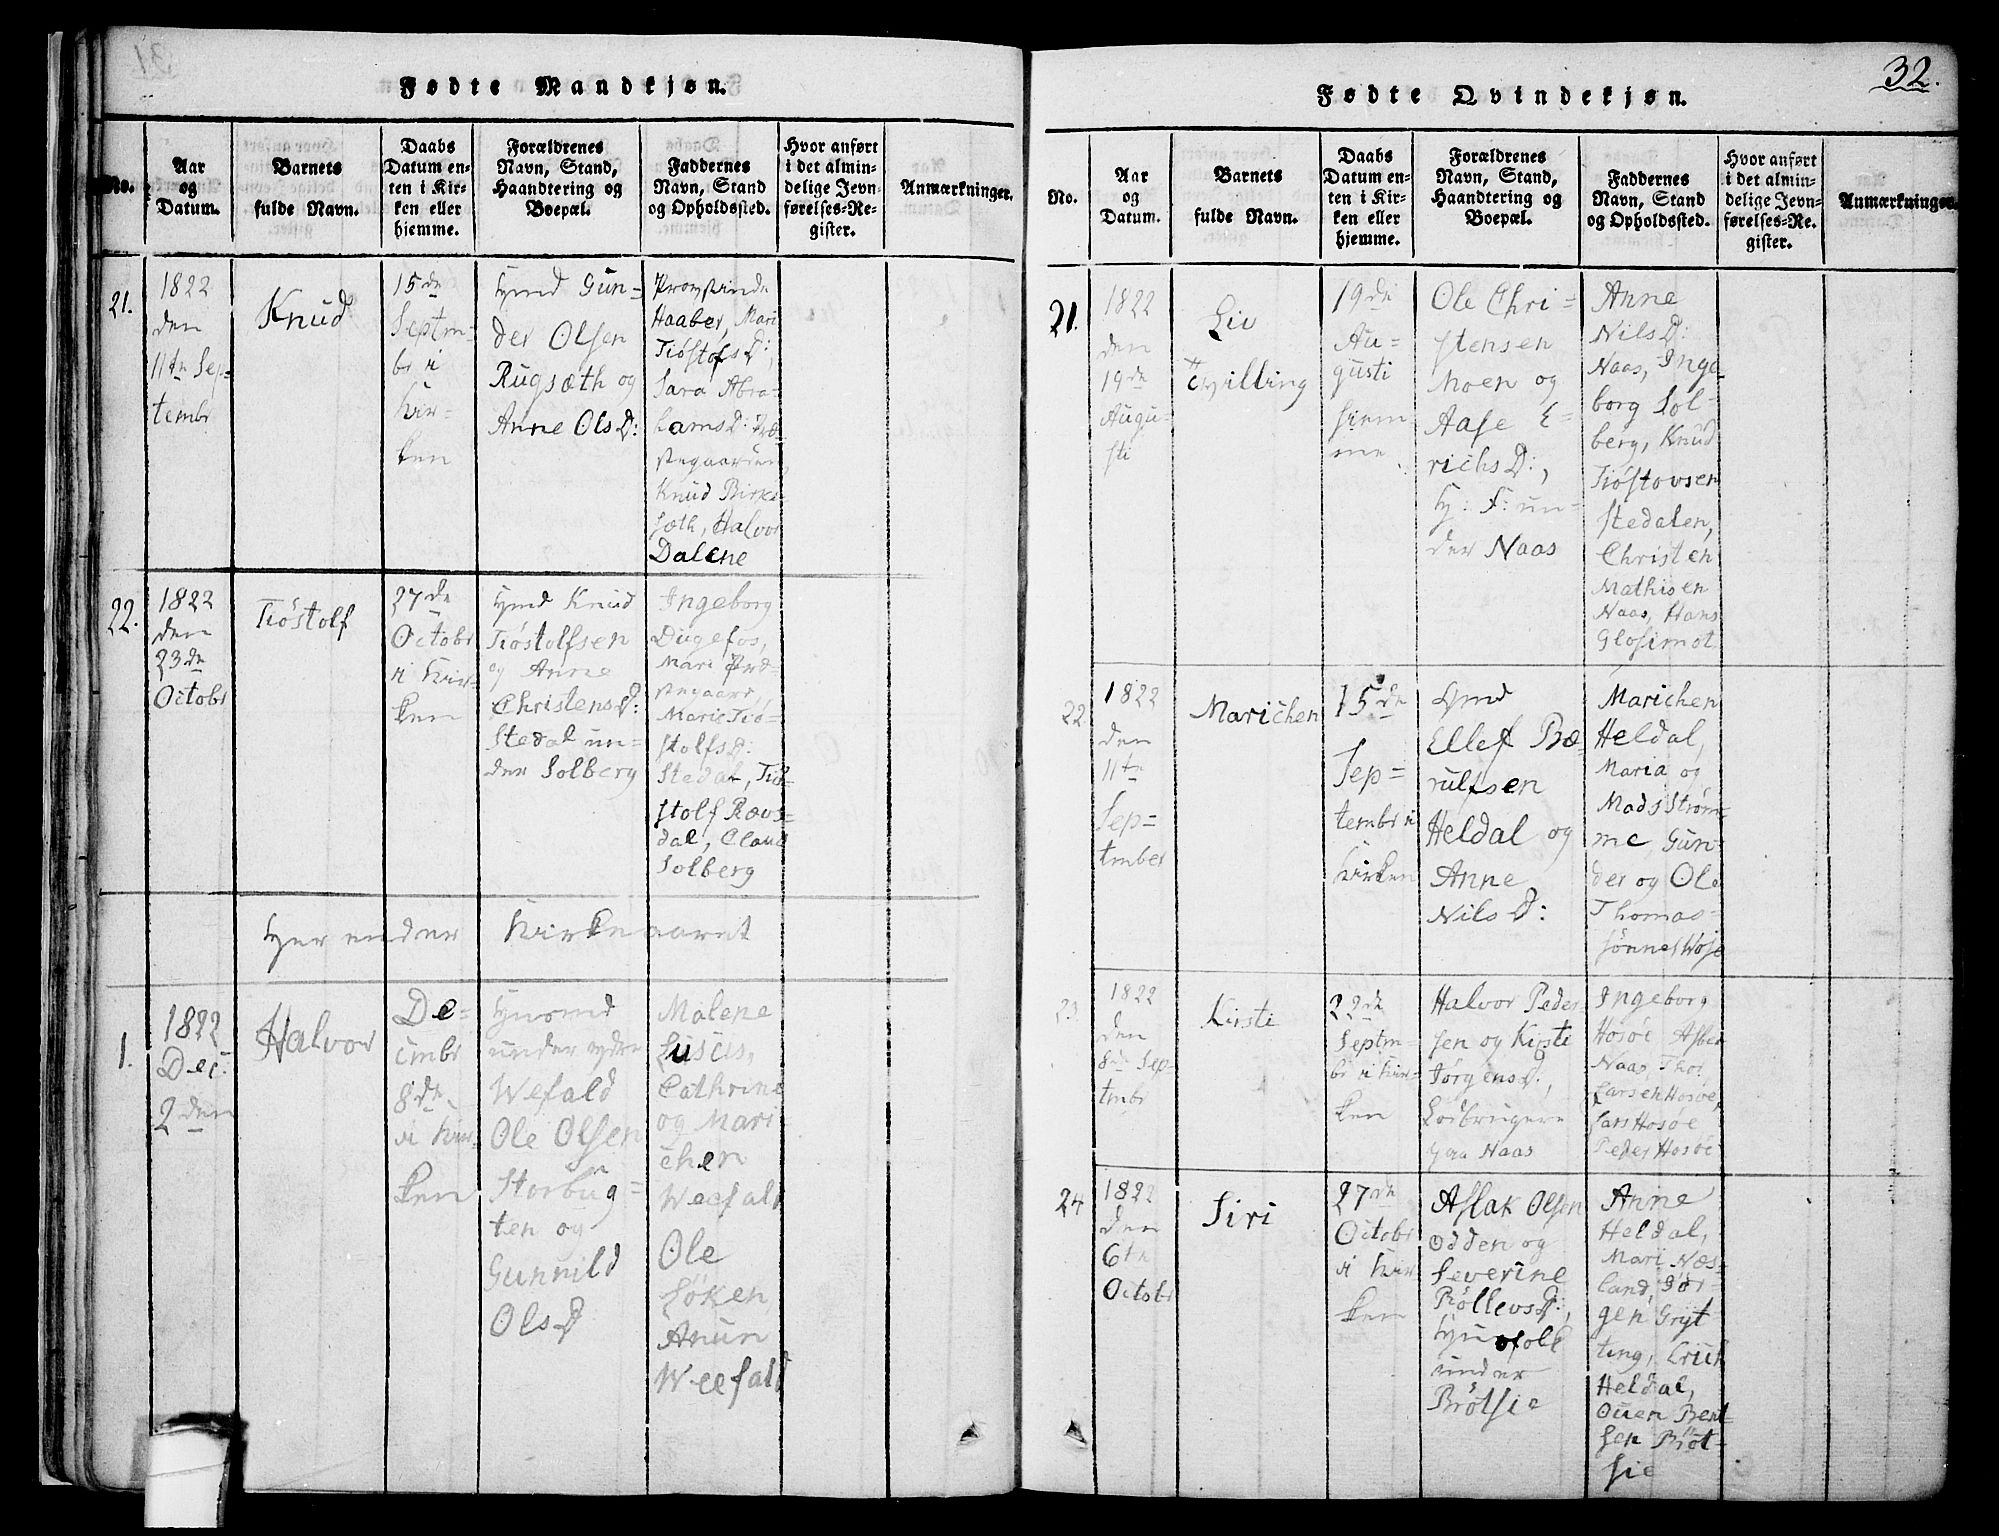 Fødte Mandkjøn.
No.
Aar
og
Datum.
Barnets
fulde Navn.
Daabs
Datum en-
ten i Kir-
ken eller
hjemme.
Forældrenes
Navn, Stand,
Haandtering og
Boepæl.
Faddernes
Navn, Stand
og Opholdssted.
Hvor anført
i det almin-
delige Jevn-
førelses-Re-
gister.
Anmærkninger.
21.
1822
den
11te Sep-
tembr
Knud
15de
Septm-
br i
Kir-
ken
Gun-
der Olsen
Rugsæth og
Anne OlsD:
Provstinde
Haaber, Mari
TiöstofsD:,
Sara Abra-
hamsD: Præ-
stegaarden,
Knud Birke-
sæth, Halvor
Dalene
22.
1822
den
23de
Octobr
Tiöstolf
27de
Octobr
i Kir-
ken
Knud
Tiöstolfsen
og Anne
ChristensD:
Stedal un-
der Solberg
Ingeborg
Dugefos,
Mari Præ-
stegaard,
Marie Tiö-
stolfsD:
Stedal, Tiö-
stolf Rævs-
dal, Claud
Solberg
Her ender Kirkeaaret
1.
1822
Dec:
2den
Halvor
De-
cmbr
8de
i Kir-
ken
under ydre
Wefald
Ole Olsen
Storbüg-
ten og
Gunnild
OlsD
Malene
Cathrine
og Mari-
chen
Weefald
Ole
Anun
Weefald
32.
Fødte Qvindekjøn.
No.
Aar
og
Datum.
Barnets
fulde Navn.
Daabs
Datum en-
ten i Kir-
ken eller
hjemme.
Forældrenes
Navn, Stand,
Haandtering og
Boepæl.
Faddernes
Navn, Stand
og Opholdssted.
Hvor anført
i det almin-
delige Jevn-
førelses-Re-
gister.
Anmærkninger.
21.
1822
den
19de
Augu-
sti
Liv
Tvilling
19de
Au-
gusti
hiem-
me
Ole Chri-
stensen
Moen og
Aase E-
richsD:,
H: F: un-
der Naas
Anne
NilsD:
Naas, Inge-
borg Sol-
berg, Knud
Tiöstovsen
Stedalen,
Christen
Mathisen
Naas, Hans
Glosimot
22
1822
den
11te
Sep-
tmber
Marichen
15de
Sep-
tembr i
Kirken
Ellef Bæ-
rulfsen
Heldal og
Anne
NilsD:
Marichen
Heldal,
Maria og
Mads Ström-
me, Gun-
der og Ole
Thomas-
sönner
23
1822
den
8de Sep-
tmbr
Kirsti
22de
Septm-
br i Kir-
ken
Halvor Peder-
sen og Kirsti
JörgensD:,
Naas
Ingeborg
Hosöe
Naas, Thor
Larsen Hosöe,
Lars Hosöe
Peder Hosöe
24
1822
den
6te
Octobr
Siri
27de
Octobr
i Kir-
ken
Aslak Olsen
Odden og
Severine
RöllevsD:,
Huusfolk
under
Brötsie
Anne
Heldal,
Mari Næs-
land, Jör-
gen Gryt-
ting, Erich
Heldal,
Ouen Bent-
sen Bröt-
sie